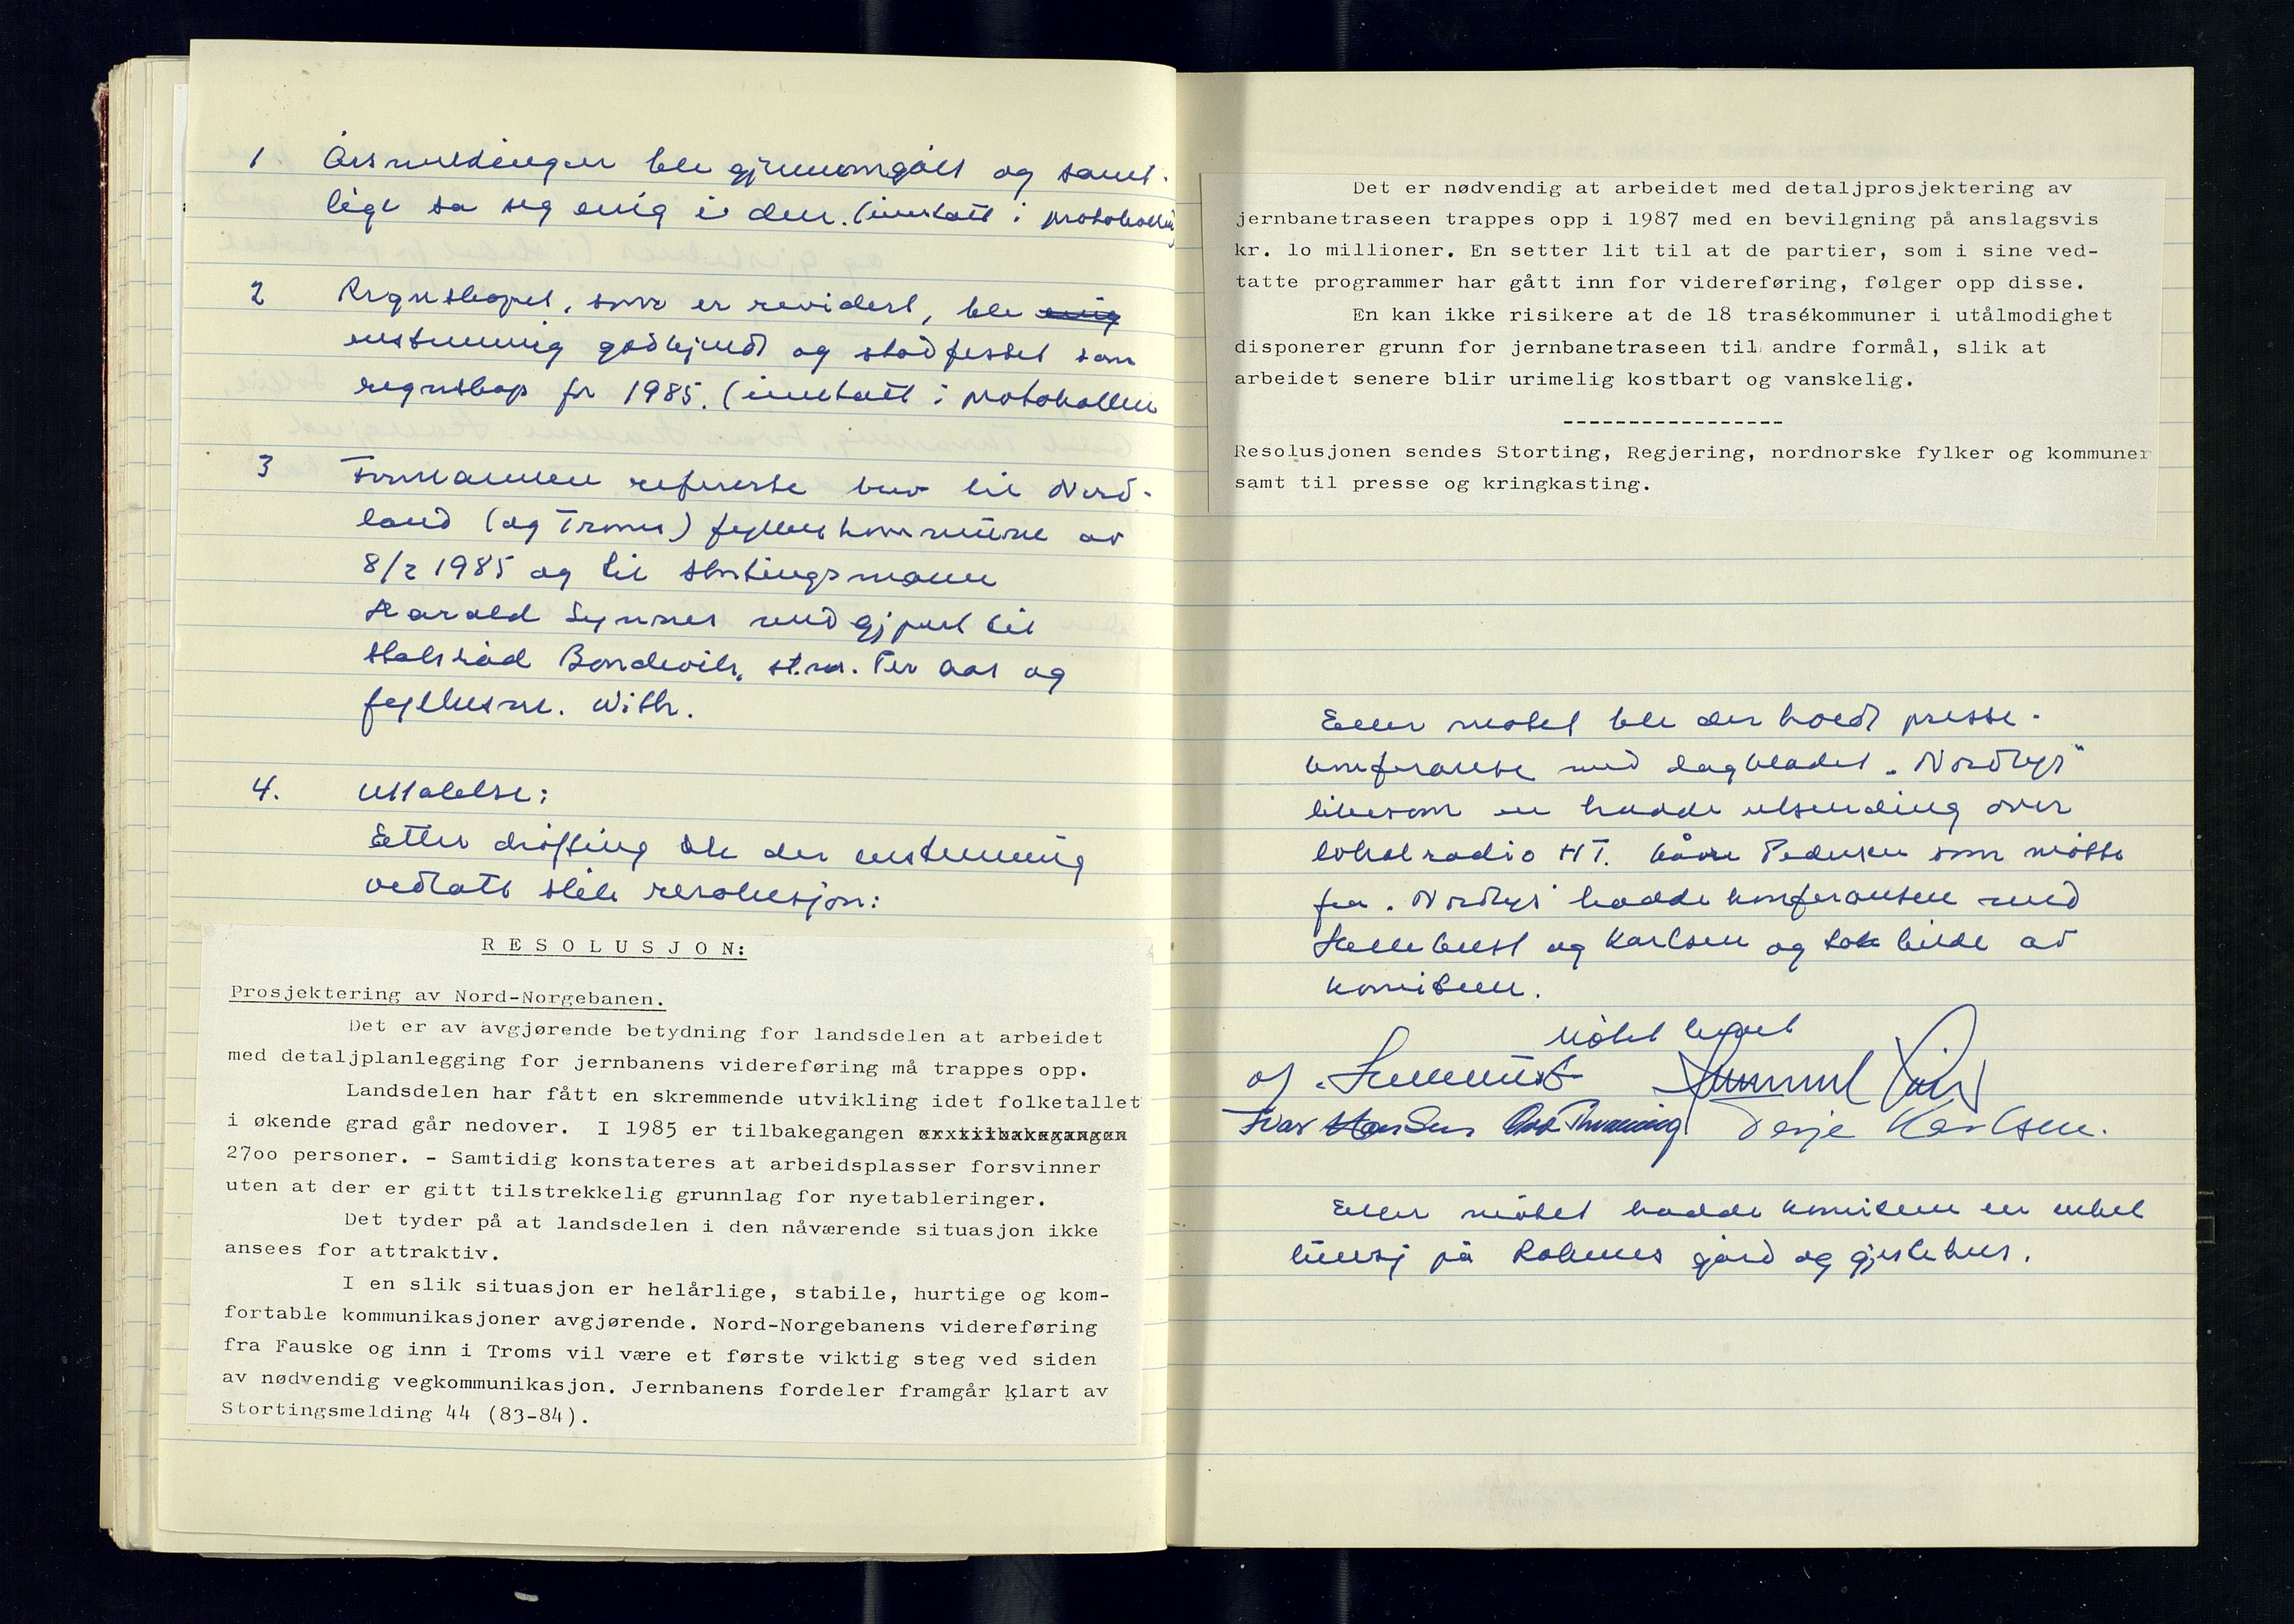 1 Årsmeldingen ble gjennomgått og samt-
lige sa seg enig i den. (inntatt i protokollen)
2 Regnskapet, som er revidert, ble enig
enstemmig godkjendt og stadfestet som
regnskap for 1985. (inntatt i protokollen
3 Formannen refererte brev til Nord-
land (og Troms) fylkeskommune av
8/2 1985 og til stortingsmann
Harald Synnes med gjpart til
statsråd Bondevik, st.m. Per Aas og
fylkesm. With.
4. Uttalelse:
Etter drøfting ble der enstemmig
vedtatt slik resolusjon:
R E S O L U S J O N:
Prosjektering av Nord-Norgebanen.
Det er av avgjørende betydning for landsdelen at arbeidet
med detaljplanlegging for jernbanens videreføring må trappes opp.
Landsdelen har fått en skremmende utvikling idet folketallet
i økende grad går nedover. I 1985 er tilbakegangen erxtilbakegangen
27oo personer. - Samtidig konstateres at arbeidsplasser forsvinner
uten at der er gitt tilstrekkelig grunnlag for nyetableringer.
Det tyder på at landsdelen i den nåværende situasjon ikke
ansees for attraktiv.
I en slik situasjon er helårlige, stabile, hurtige og kom-
fortable kommunikasjoner avgjørende. Nord-Norgebanens videreføring
fra Fauske og inn i Troms vil være et første viktig steg ved siden
av nødvendig vegkommunikasjon. Jernbanens fordeler framgår klart av
Stortingsmelding 44 (83-84).
Det er nødvendig at arbeidet med detaljprosjektering av
jernbanetraseen trappes opp i 1987 med en bevilgning på anslagsvis
kr. lo millioner. En setter lit til at de partier, som i sine ved-
tatte programmer har gått inn for videreføring, følger opp disse.
En kan ikke risikere at de 18 trasékommuner i utålmodighet
disponerer grunn for jernbanetraseen til andre formål, slik at
arbeidet senere blir urimelig kostbart og vanskelig.
-----------------
Resolusjonen sendes Storting, Regjering, nordnorske fylker og kommuner
samt til presse og kringkasting.
Etter møtet ble der holdt presse-
konferanse med dagbladet "Nordlys"
likesom en hadde utsending over
lokalradio HT. Kåre Pedersen som møtte
fra "Nordlys" hadde konferansen med
og Karlsen og tok bilde av
komiteen.
Møtet hevet
Ivar Hansen Thoraning Terje Karlsen.
Etter møtet hadde komiteen en enkel
lunsj på gård og gjestehus.